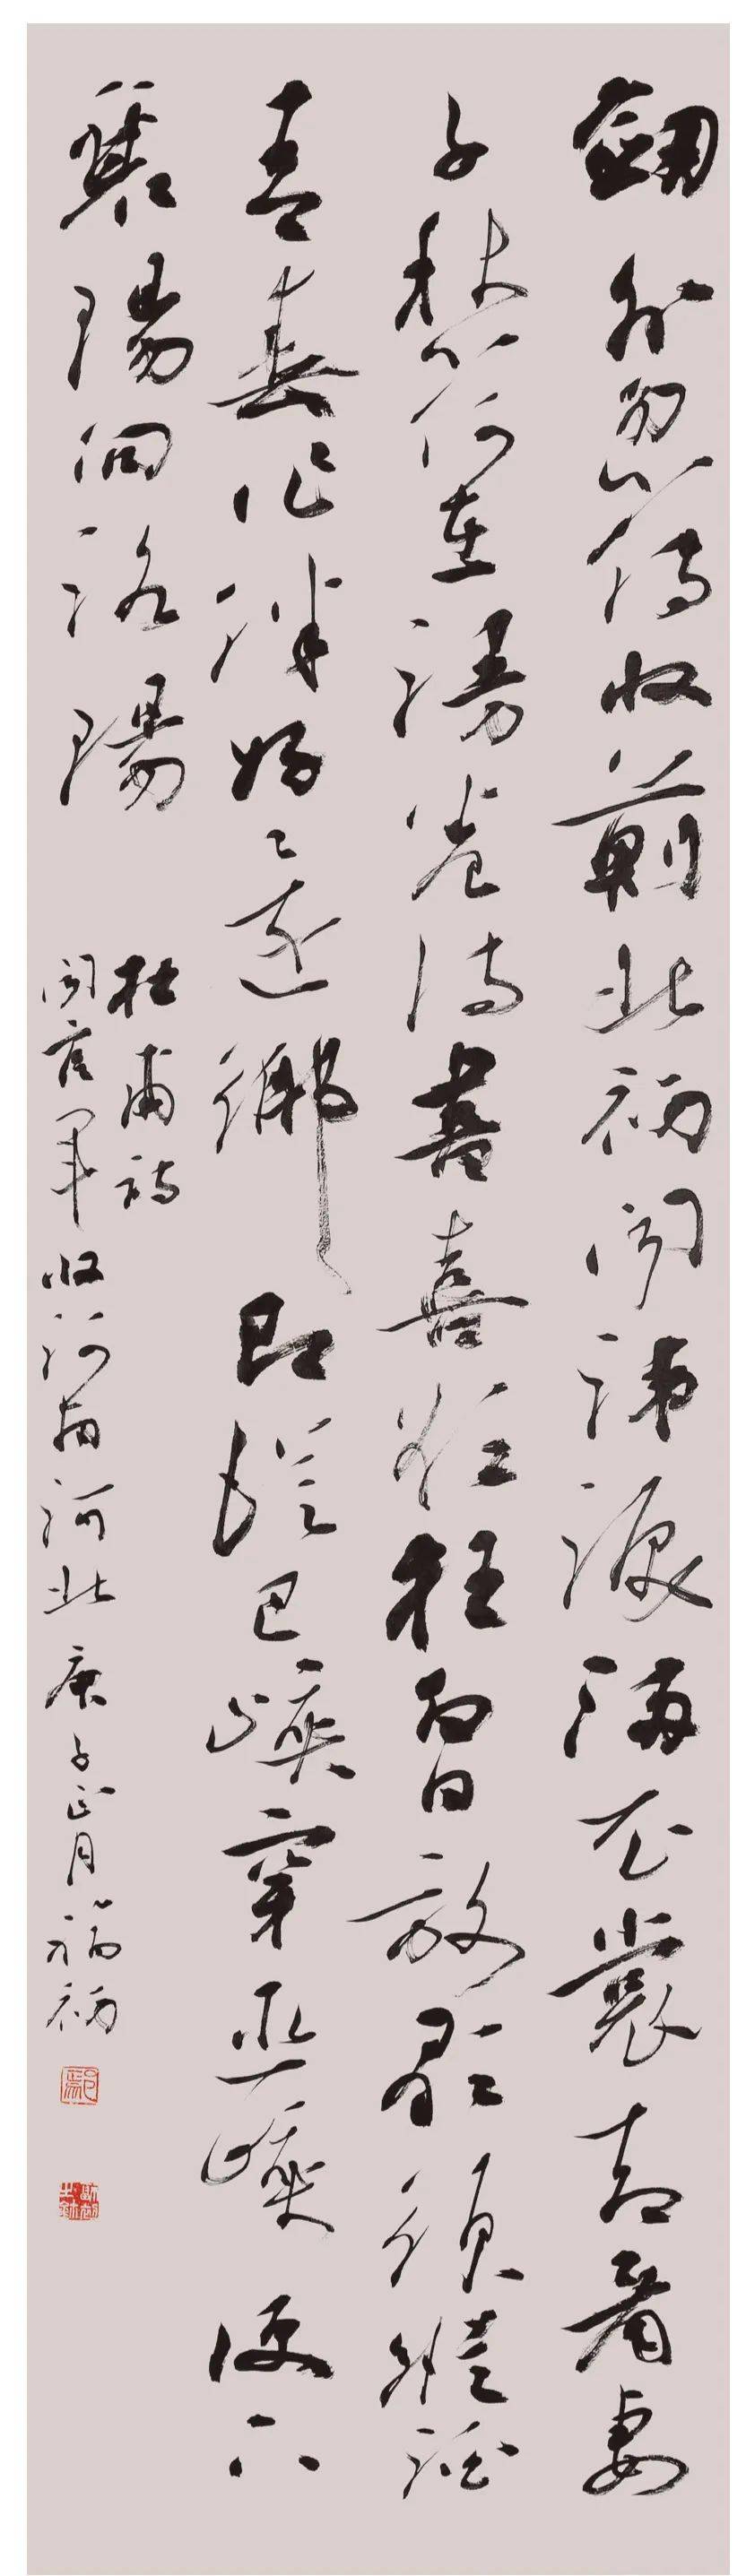 劔外忽傳收薊北初聞涕淚滿衣裳却看妻
子愁何在漫卷詩書喜欲狂白日放歌須縱酒
青春作伴好〻還鄉即從巴峽穿巫峽便下
襄陽向洛陽
杜甫詩
聞官軍收河南河北庚子正月福初
鄢